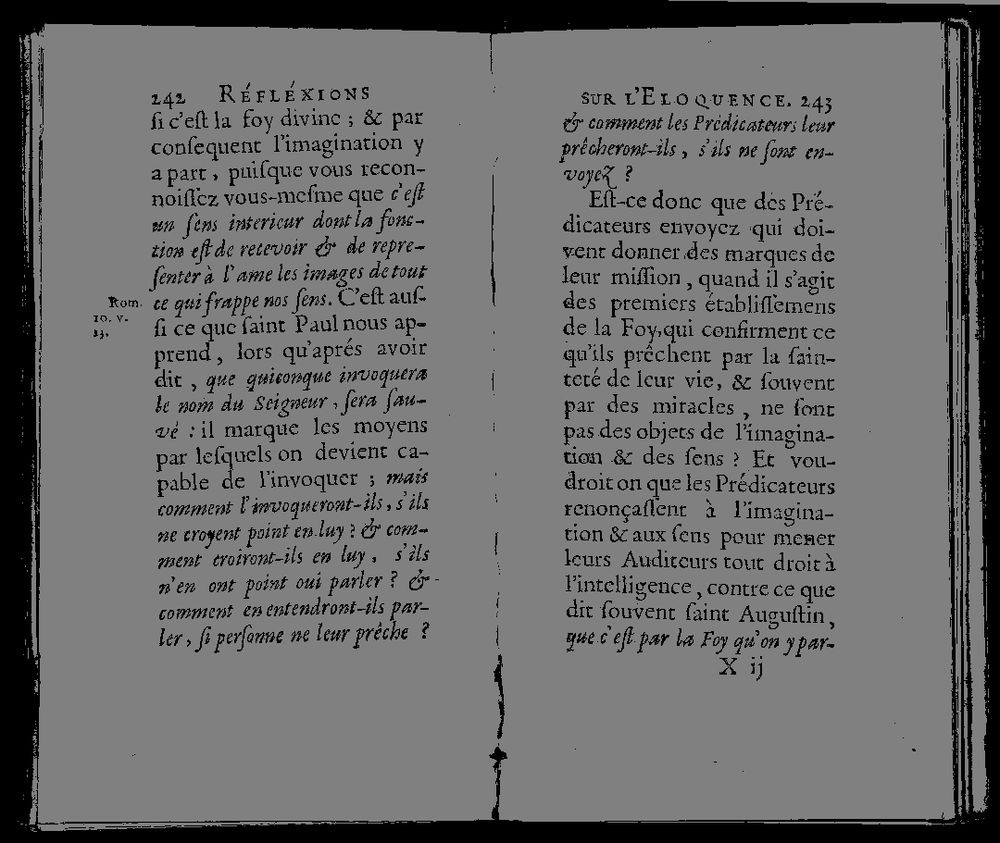 242 RÉFLÉXIONS
si c'est la foy divine ; & par
consequent l'imagination y
a part, puisque vous recon-
noissez vous-mesme que c'est
un sens interieur dont la fonc-
tion est de recevoir & de repre-
senter à l'ame les images de tout
ce qui frappe nos sens. C'est aus-
si ce que saint Paul nous ap-
prend, lors qu'aprés avoir
dit, que quiconque invoquera
le nom du Seigneur, sera sau-
vé : il marque les moyens
par lesquels on devient ca-
pable de l'invoquer ; mais
comment l'invoqueront-ils, s'ils
ne croyent point en luy ? & com-
ment croiront-ils en luy, s'ils
n'en ont point oui parler ? &
comment en entendront-ils par-
ler, si personne ne leur prêche ?
Rom.
10. v.
13.
SUR L'ELOQUENCE. 243
& comment les Prédicateurs leur
prêcheront-ils, s'ils ne sont en-
voyez ?
Est-ce donc que des Pré-
dicateurs envoyez qui doi-
vent donner des marques de
leur mission, quand il s'agit
des premiers établissemens
de la Foy, qui confirment ce
qu'ils prêchent par la sain-
teté de leur vie, & souvent
par des miracles, ne sont
pas des objets de l'imagina-
tion & des sens ? Et vou-
droit on que les Prédicateurs
renonçassent à l'imagina-
tion & aux sens pour mener
leurs Auditeurs tout droit à
l'intelligence, contre ce que
dit souvent saint Augustin,
que c'est par la Foy qu'on y par-
X ij